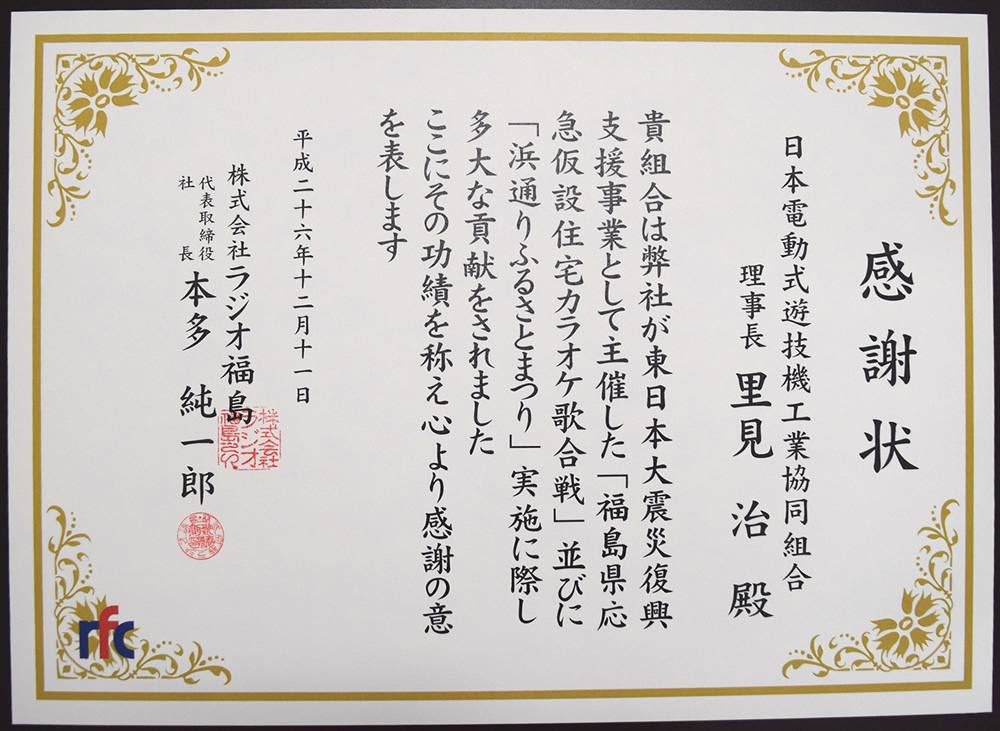 感謝状
日本電動式遊技機工業協同組合
理事長 里見 治 殿
貴組合は弊社が東日本大震災復興
支援事業として主催した「福島県応
急仮設住宅カラオケ歌合戦」並びに
「浜通りふるさとまつり」実施に際し
多大な貢献をされました
ここにその功績を称え心より感謝の意
を表します
平成二十六年十二月十一日
株式会社ラジオ福島
代表取締役
社長 本多 純一郎
株式会社
ラジオ
福島之印
rfc